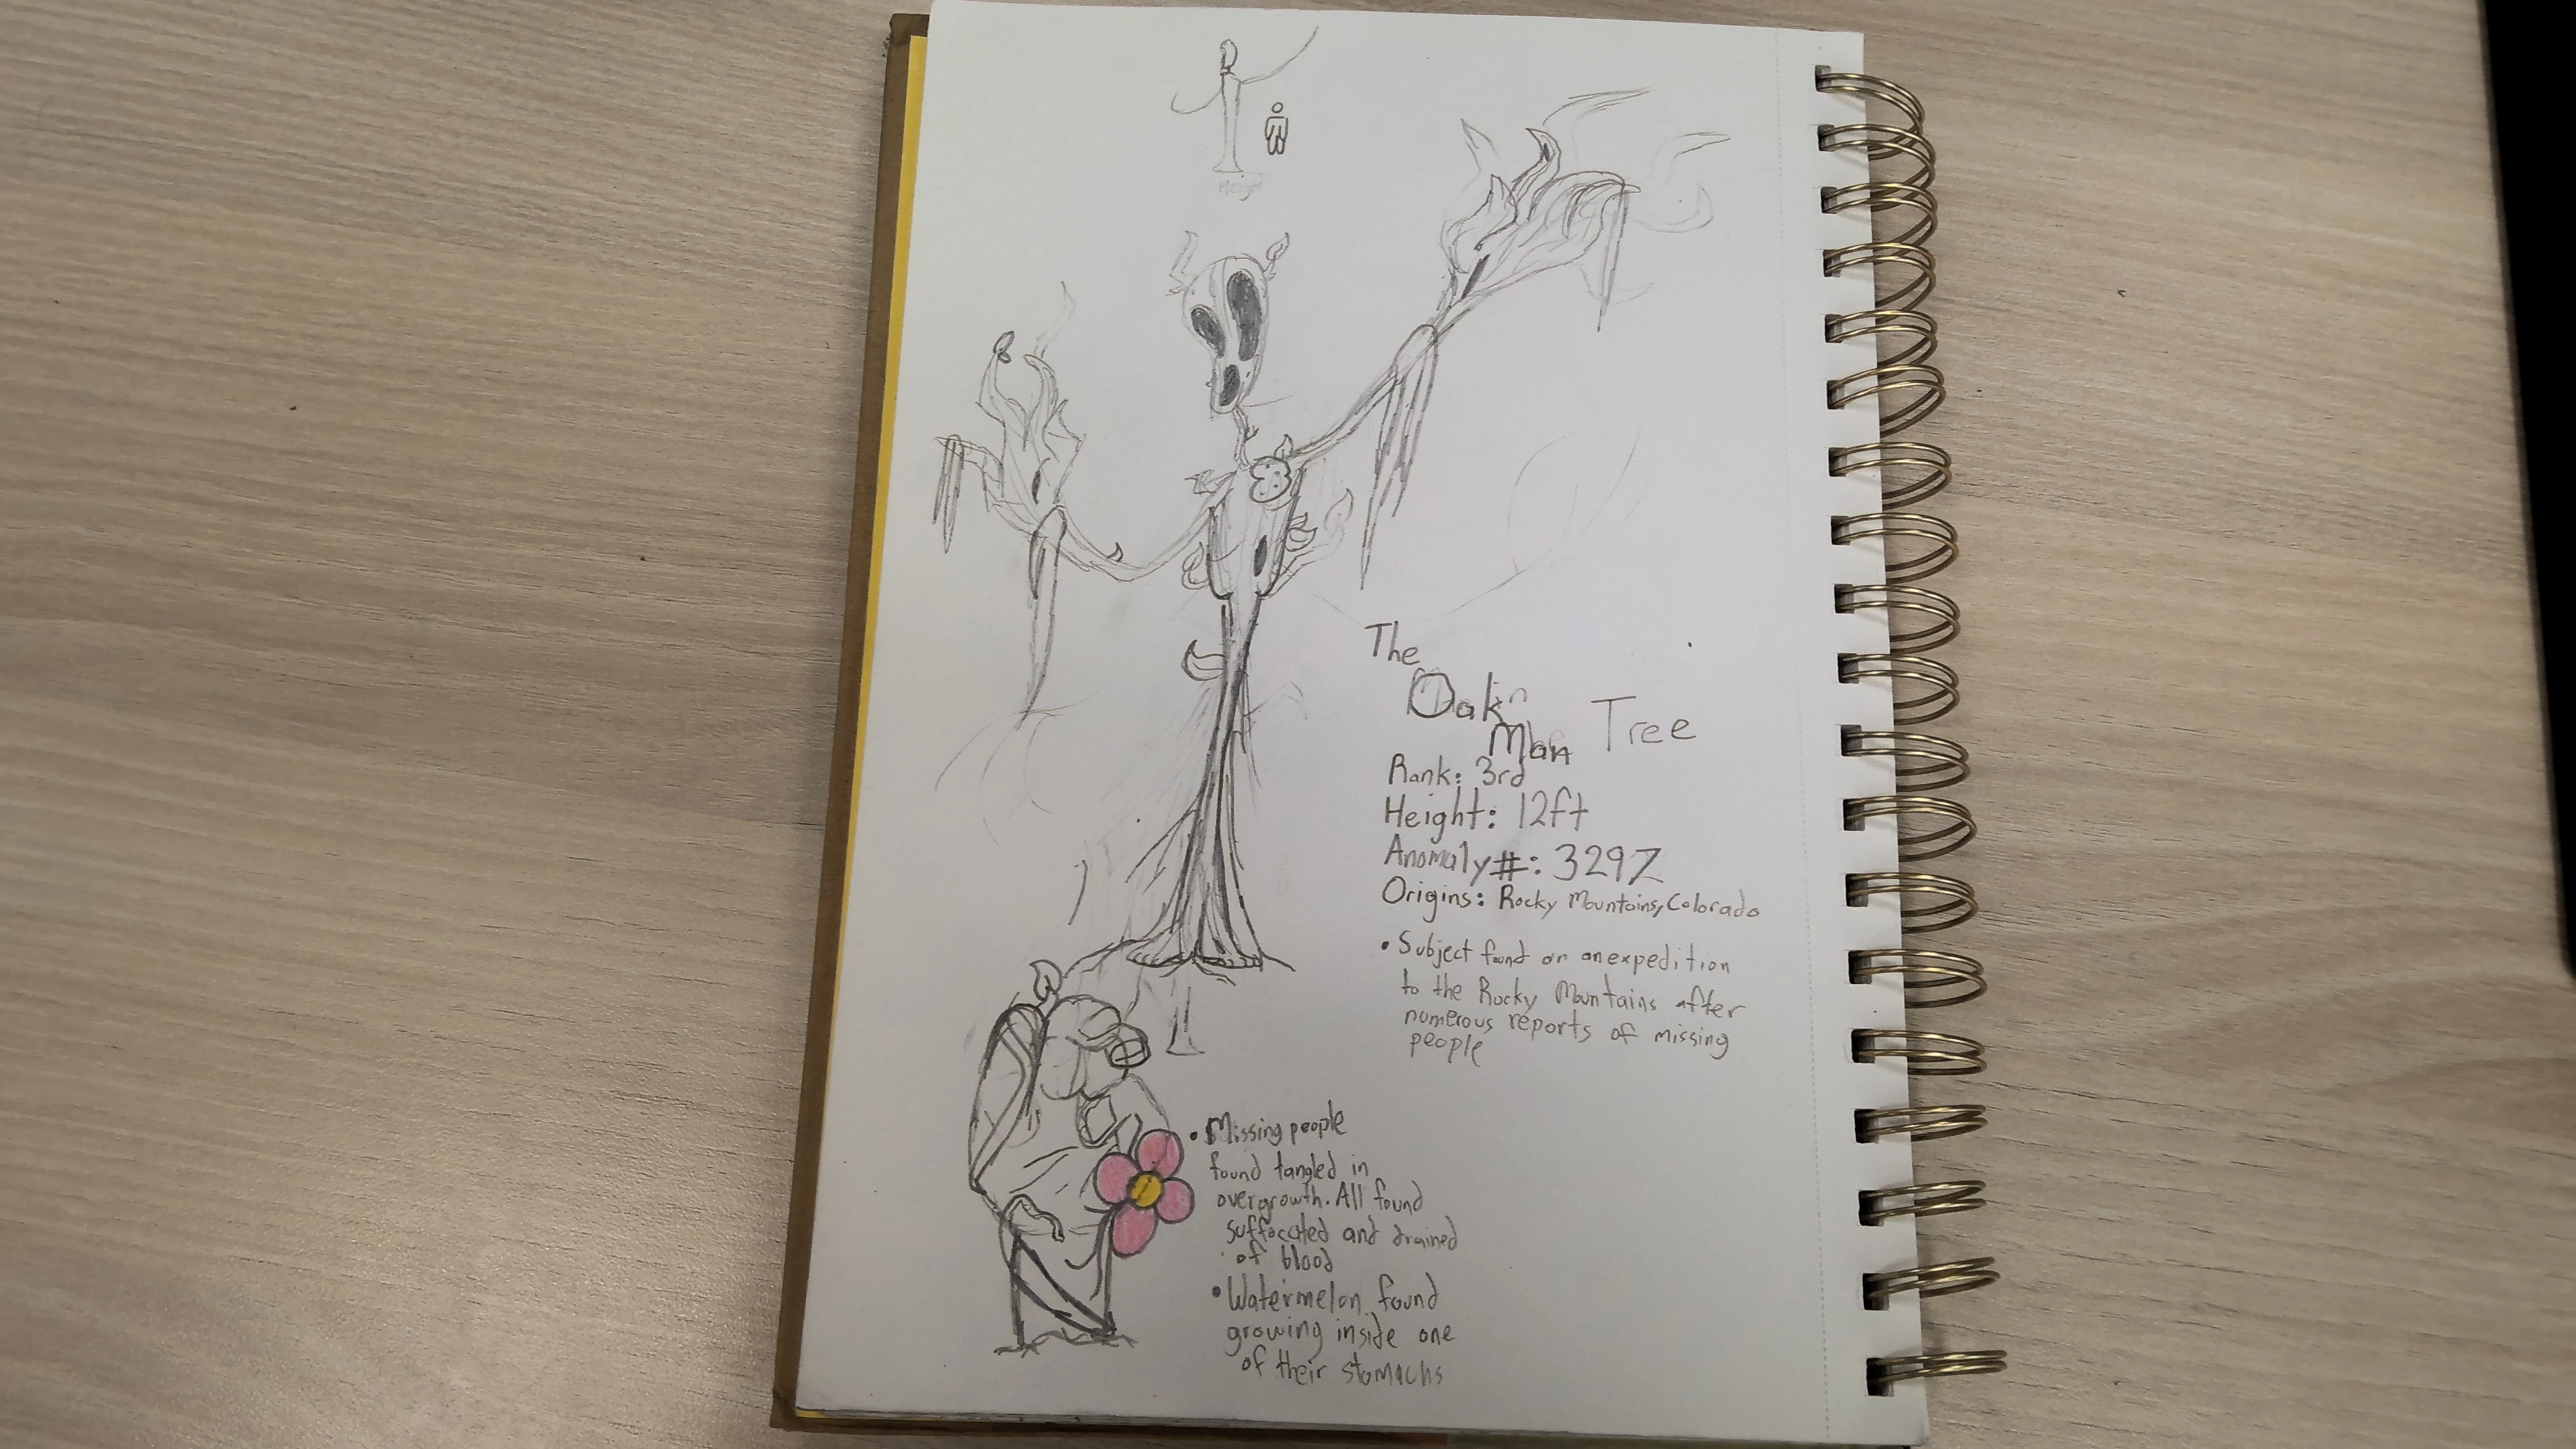 Height
The
Oak
Man Tree
Rank: 3rd
Height: 12ft
Anomaly #: 329Z
Origins: Rocky Mountains, Colorado
• Subject found on an expedition
to the Rocky Mountains after
numerous reports of missing
people
• Missing people
found tangled in
overgrowth. All found
suffocated and drained
of blood
• Watermelon found
growing inside one
of their stomachs